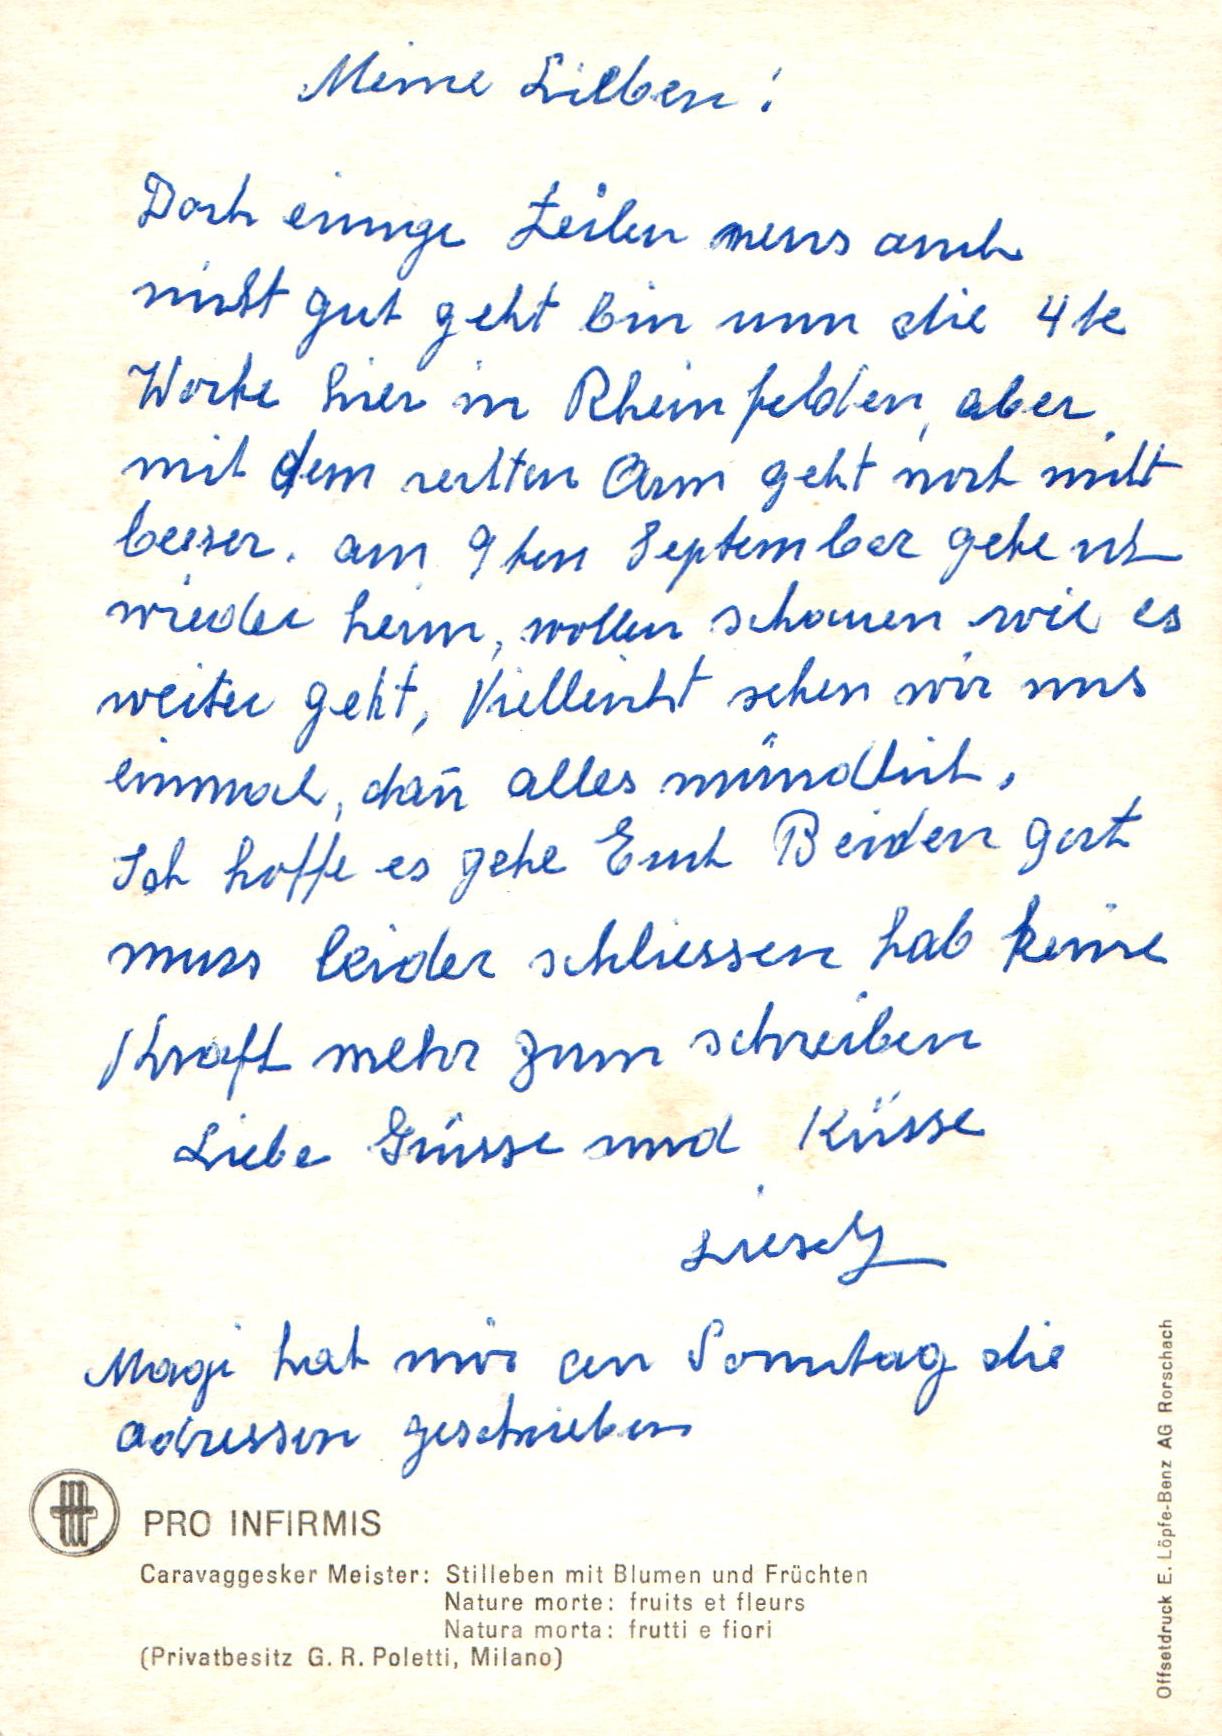 Meine Lieben!
Doch einige Zeilen wens auch
nicht gut geht bin nun die 4te
Woche hier in Rheinfelden, aber
mit dem rechten Arm geht noch nicht
besser. am 9ten September gehe ich
wieder heim, wollen schauen wie es
weiter geht, Vielleicht sehen wir uns
einmal, dañ alles mündlich.
Ich hoffe es gehe Euch Beiden gut
muss leider schliessen hab keine
Kraft mehr zum schreiben
Liebe Grüsse und Küsse
Liesely
Magi hat mir am Sonntag die
adressen geschrieben
PRO INFIRMIS
Caravaggesker Meister: Stilleben mit Blumen und Früchten
Nature morte: fruits et fleurs
Natura morta: frutti e fiori
(Privatbesitz G. R. Poletti, Milano)
Offsetdruck E. Löpfe-Benz AG Rorschach